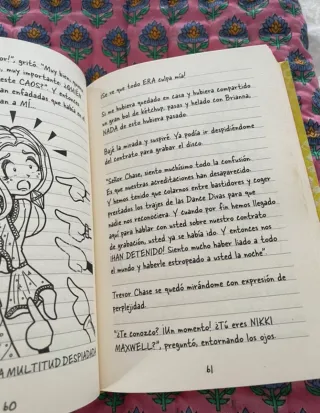 or!", gritó. "Muy bien,
muy importante: ¿QUIÉN
este CAOS?". Y entonces
an enfadadas que había en el
an a MÍ.
A MULTITUD DESPIADADA
60
¡Es ve que todo ERA culpa mía!
Si me hubiera quedado en casa y hubiera compartido
un gran bol de kétchup, pasas y helado con Brianna,
NADA de esto hubiera pasado.
Bajé la mirada y suspiré. Ya podía ir despidiéndome
del contrato para grabar el disco.
"Señor Chase, siento muchísimo toda la confusión.
Es que nuestras acreditaciones han desaparecido.
Y hemos tenido que colarnos entre bastidores y coger
prestados los trajes de las Dance Divas para que
nadie nos reconociera. Y cuando por fin hemos llegado
aquí para hablar con usted sobre nuestro contrato
de grabación, usted ya se había ido. Y entonces nos
¡HAN DETENIDO! Siento mucho haber liado a todo
el mundo y haberle estropeado a usted la noche".
Trevor Chase se quedó mirándome con expresión de
perplejidad.
"¿Te conozco? ¡Un momento! ¿Tú eres NIKKI
MAXWELL?", preguntó, entornando los ojos.
61